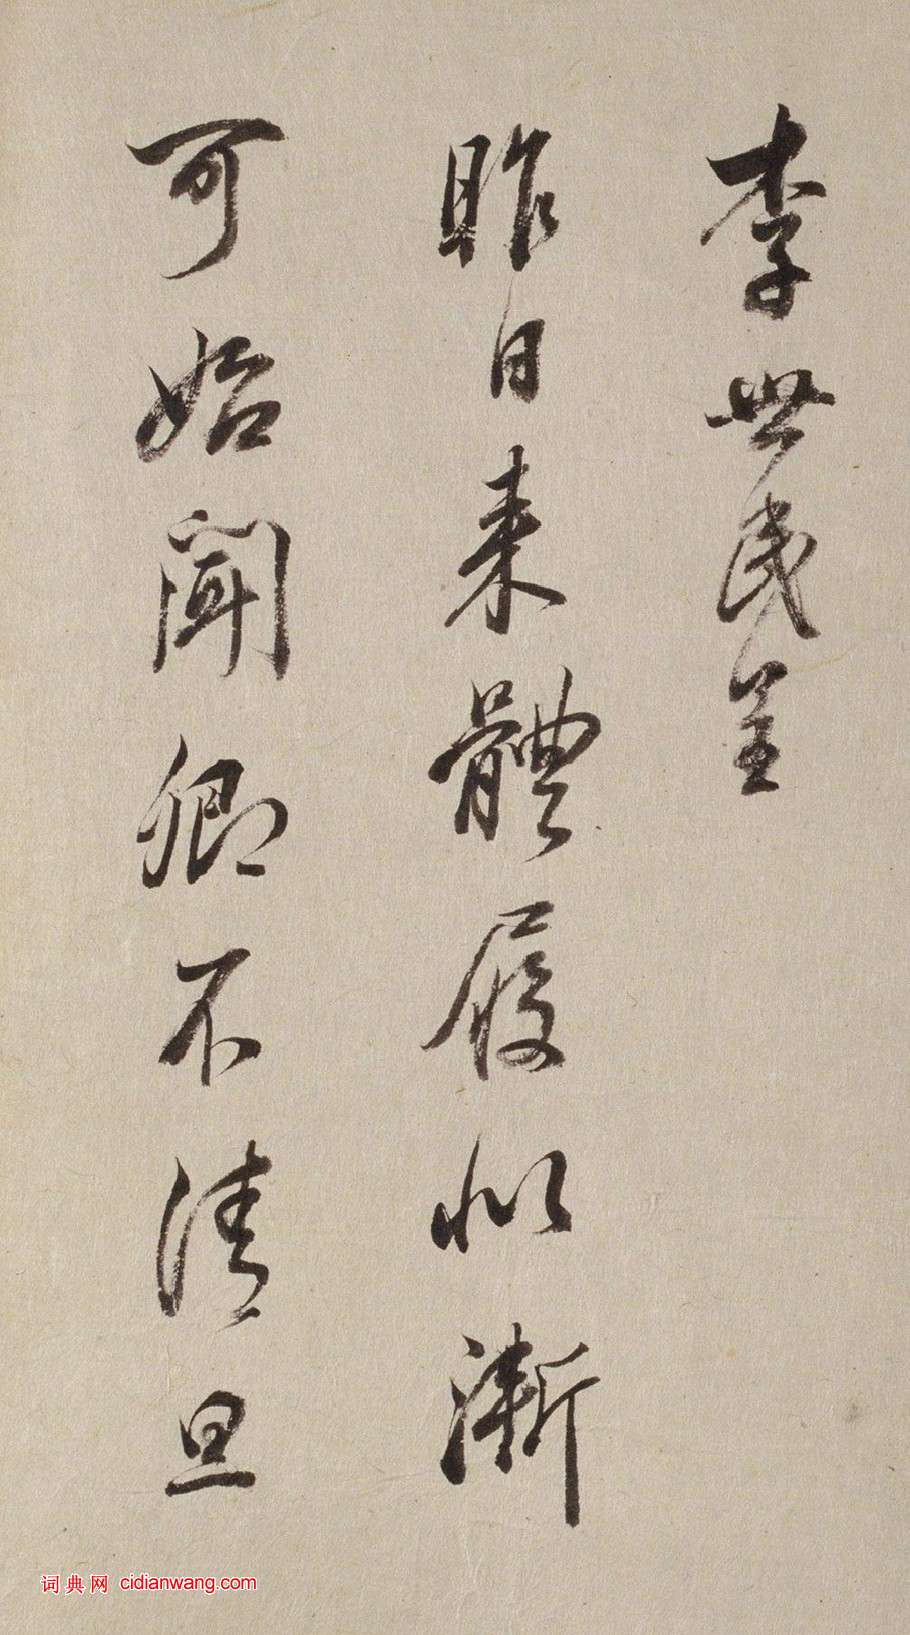 李世民呈
昨日来體履似漸
可始聞卿不清旦
词典网 cidianwang.com